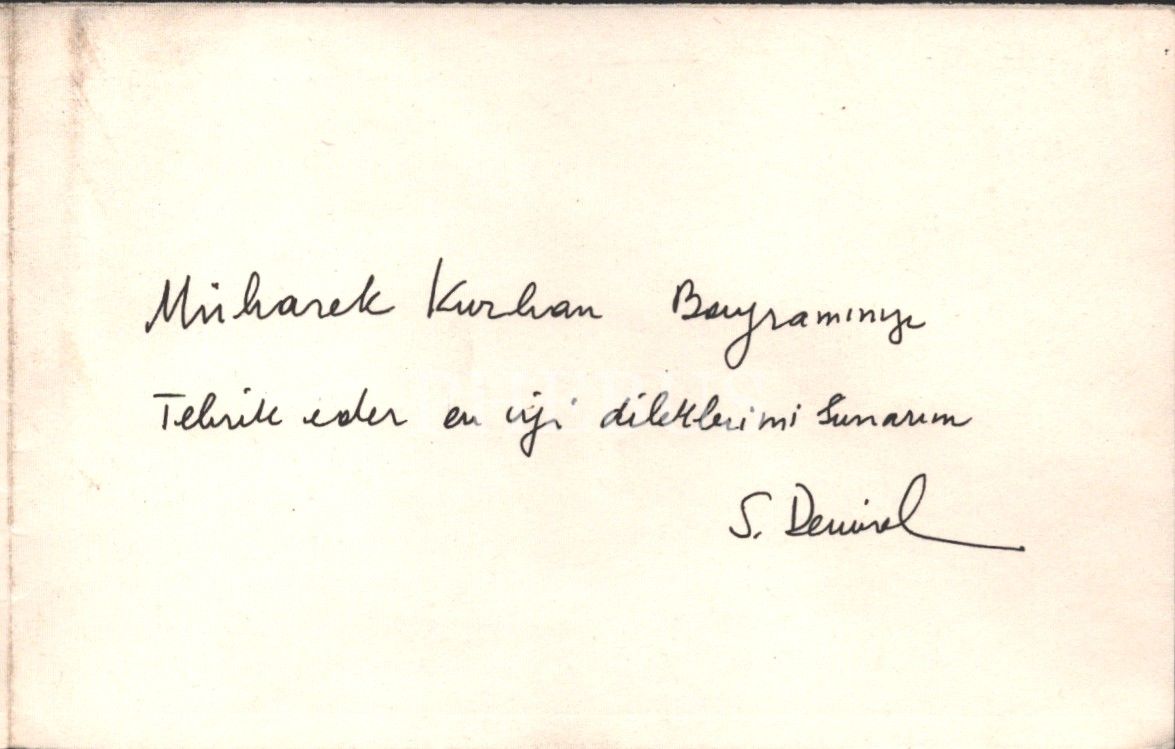 Mübarek Kurban Bayramınızı
Tebrik eder en iyi dileklerimi sunarım
S. Demirel